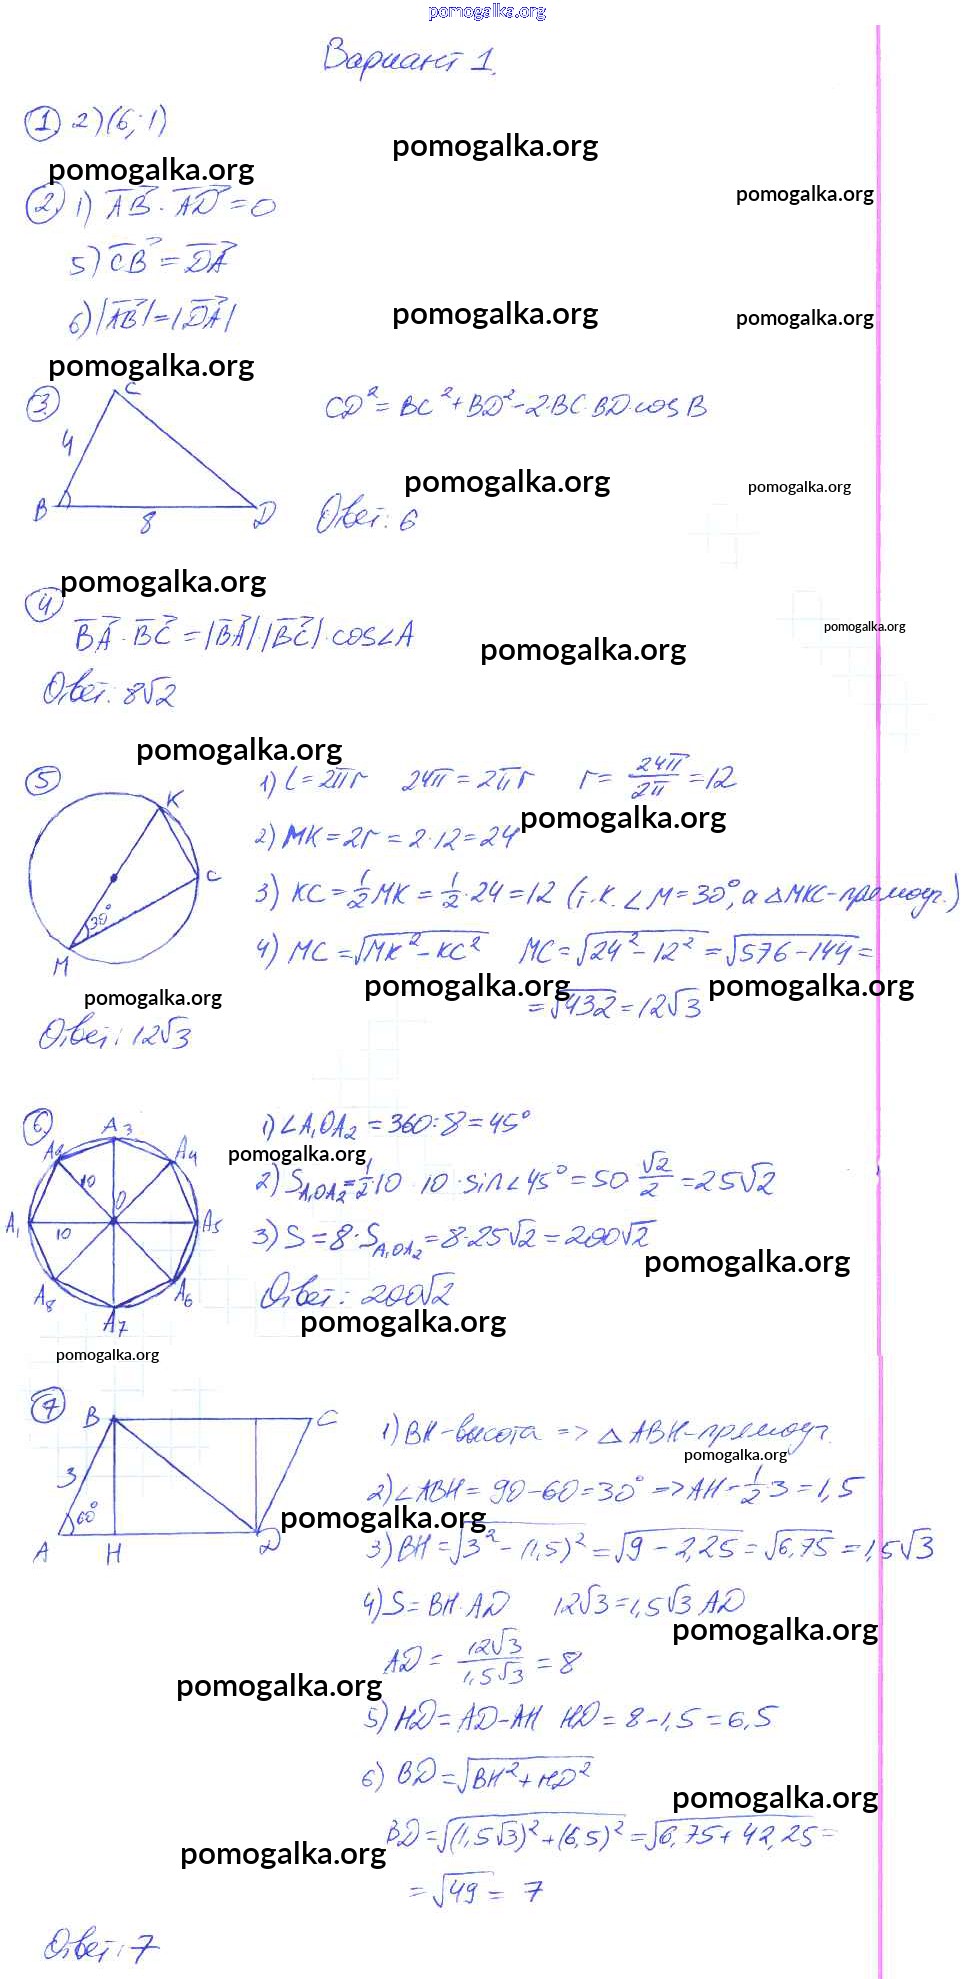 pomogalka.org
Вариант 1.
1 2) (6; 1)
pomogalka.org
pomogalka.org
pomogalka.org
2. 1) AB · AD = 0
5) CB = DA
6) |AB| = |DA|
pomogalka.org
pomogalka.org
pomogalka.org
3. C
4
B
8
D
CD² = BC² + BD² - 2·BC·BD·cos B
pomogalka.org
pomogalka.org
Ответ: 6
pomogalka.org
4.
BA · BC = |BA|·|BC|·cos∠A
pomogalka.org
pomogalka.org
Ответ: 8√2
pomogalka.org
5
K
C
M
30°
1) C = 2πr 24π = 2πr r = 24π/2π = 12
pomogalka.org
2) MK = 2r = 2·12 = 24
3) KC = 1/2 MK = 1/2 · 24 = 12 (т.к. ∠M = 30°, а △MKC - прямоуг.)
4) MC = √(MK² - KC²) MC = √(24² - 12²) = √(576 - 144) =
pomogalka.org
pomogalka.org
pomogalka.org
= √432 = 12√3
Ответ: 12√3
6.
A₁
A₂
A₃
A₄
A₅
A₆
A₇
A₈
O
10
10
1) ∠A₁OA₂ = 360:8 = 45°
pomogalka.org
2) S A₁OA₂ = 1/2 10 · 10 · sin∠45° = 50 √2/2 = 25√2
3) S = 8·S A₁OA₂ = 8·25√2 = 200√2
pomogalka.org
Ответ: 200√2
pomogalka.org
pomogalka.org
7
B
C
3
60°
A
H
D
1) BH - высота => △ABH - прямоуг.
pomogalka.org
2) ∠ABH = 90 - 60 = 30° => AH - 1/2·3 = 1,5
pomogalka.org
3) BH = √(3² - (1,5)²) = √(9 - 2,25) = √6,75 = 1,5√3
4) S = BH·AD 12√3 = 1,5√3 AD
pomogalka.org
AD = 12√3/1,5√3 = 8
pomogalka.org
5) HD = AD - AH HD = 8 - 1,5 = 6,5
6) BD = √(BH² + HD²)
pomogalka.org
BD = √((1,5√3)² + (6,5)²) = √(6,75 + 42,25) =
pomogalka.org
= √49 = 7
Ответ: 7